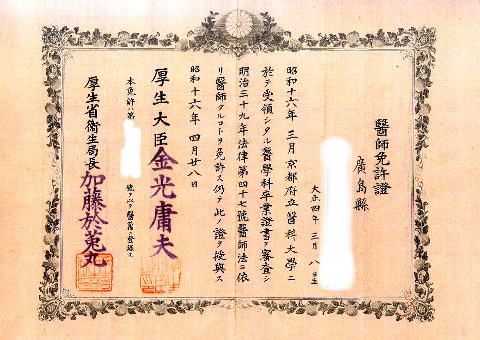 醫師免許證
廣島縣
大正四年三月八日生
昭和十六年三月京都府立醫科大學ニ
於テ受領シタル醫學科卒業證書ヲ審査シ
明治三十九年法律第四十七號醫師法ニ依
リ醫師タルコトヲ免許ス仍テ此ノ證ヲ授與ス
昭和十六年四月廿八日
厚生大臣金光庸夫
本免許ハ第
號ヲ以テ醫籍ニ登錄ス
厚生省衞生局長加藤於菟丸